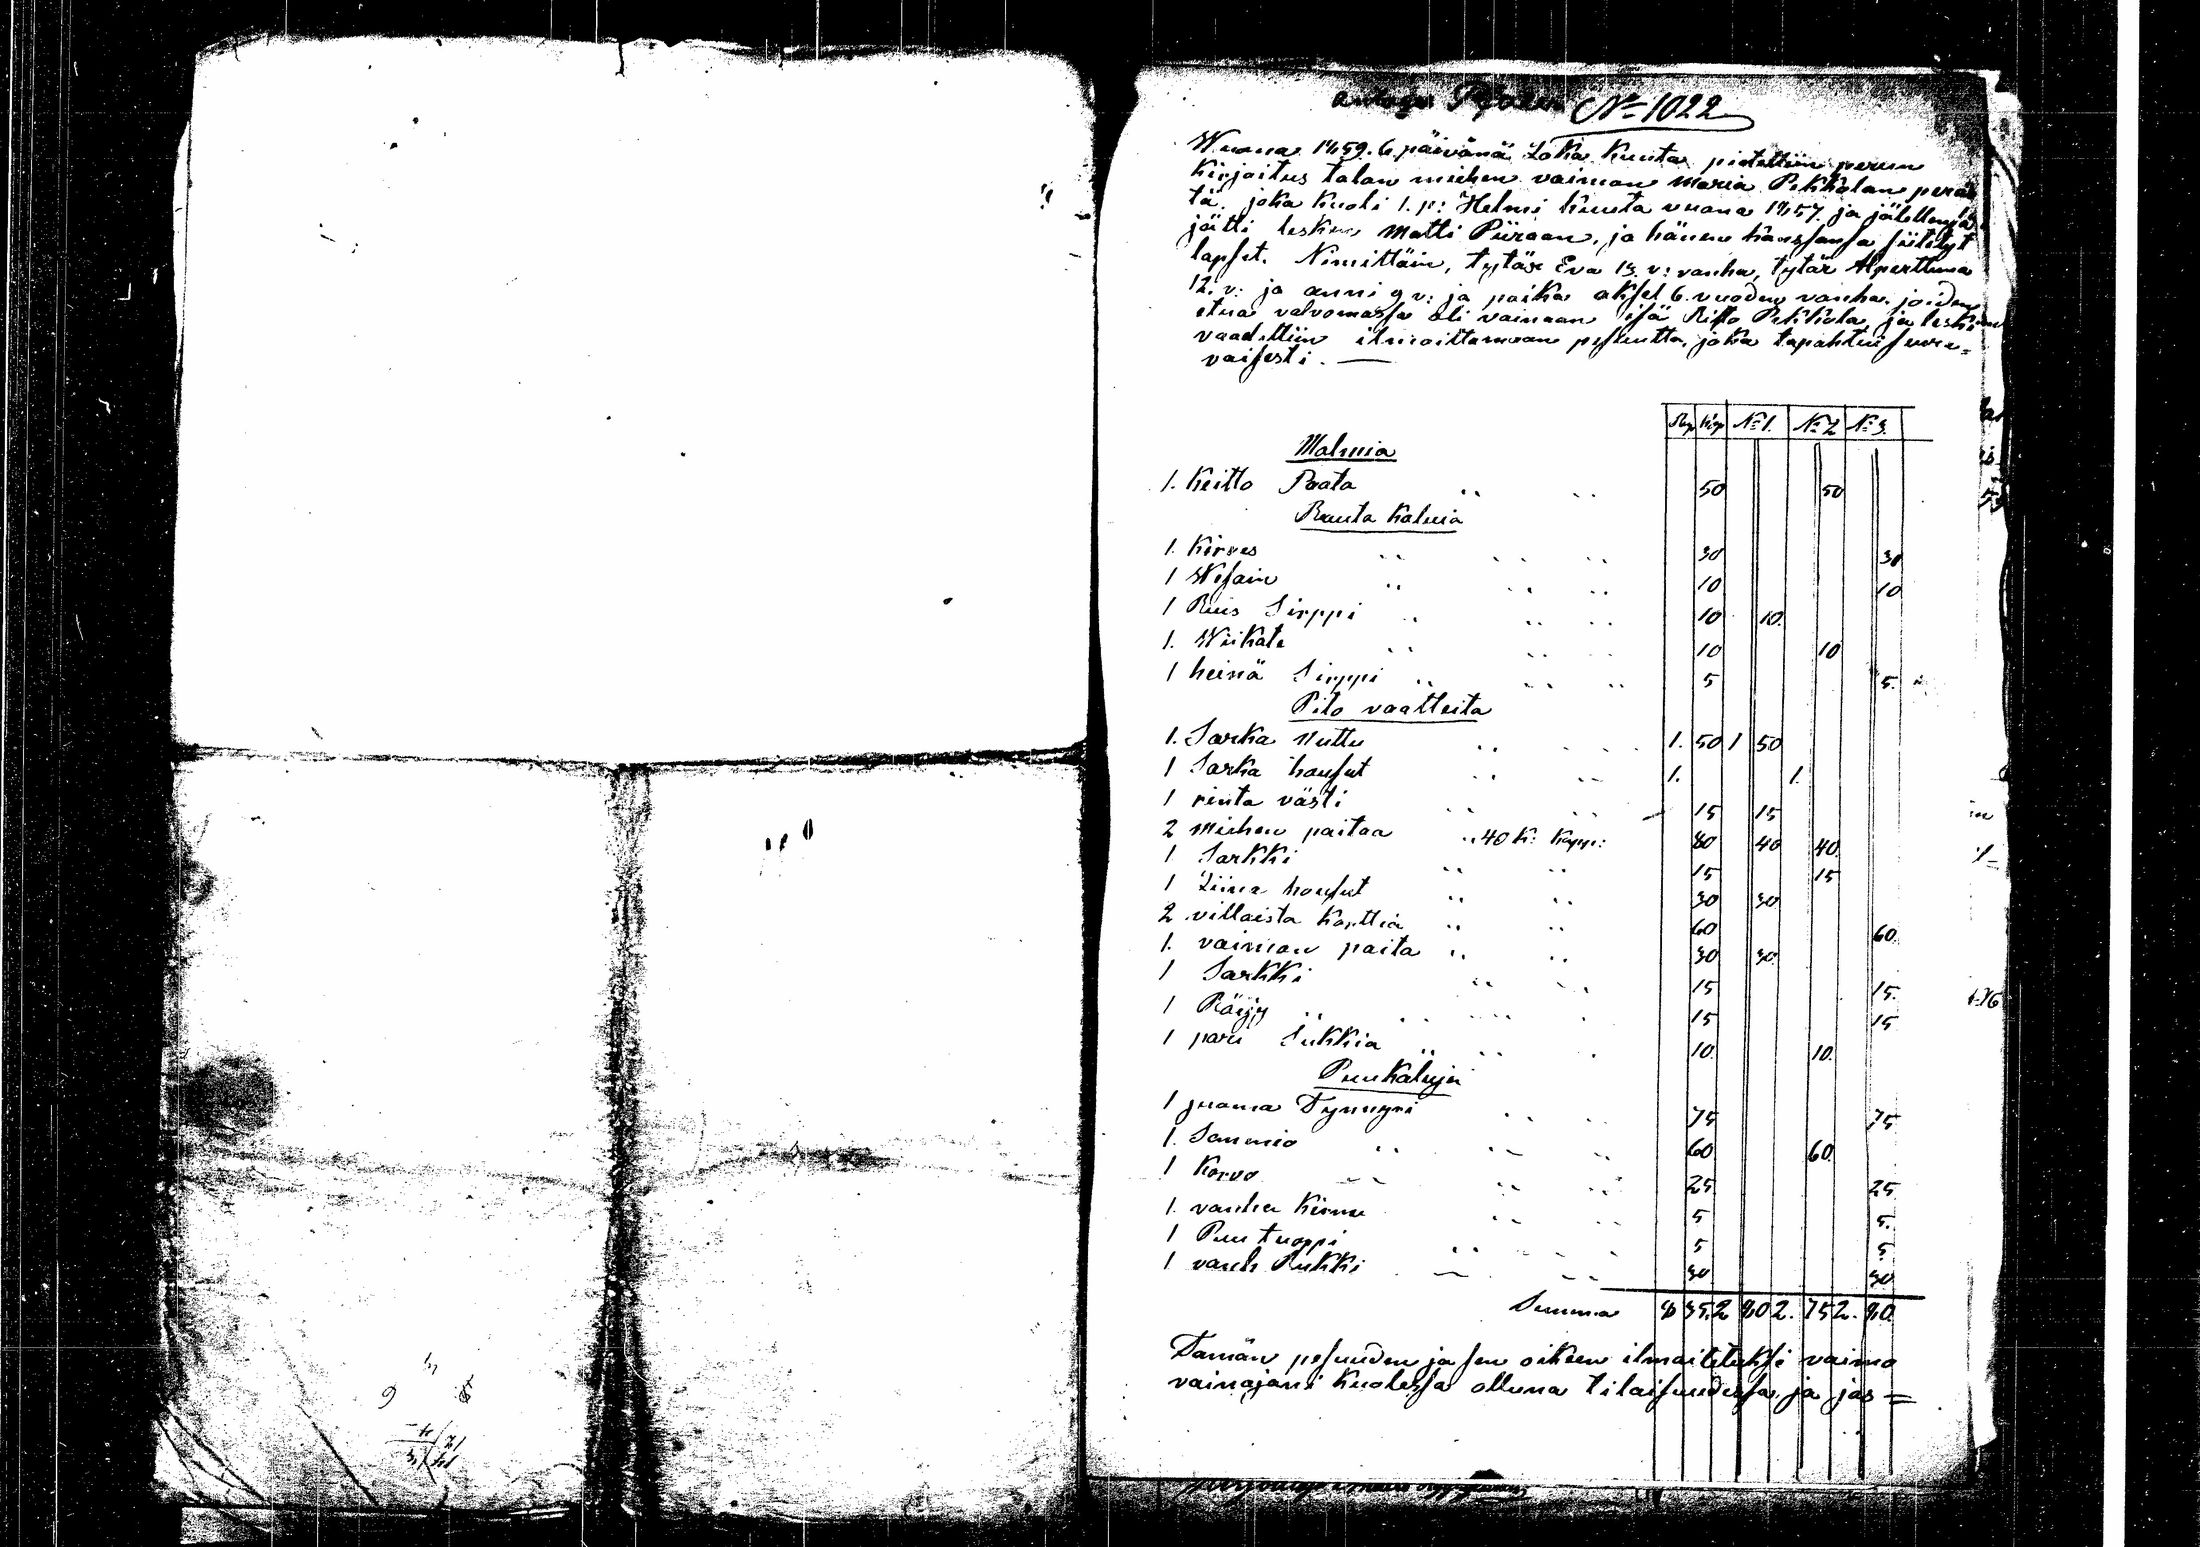 No 1022
Wuona 1859. 6. päivänä Loka Kuuta pidettiin perun
kirjoitus talon miehen vaimon Maria Pekkolan peräs
tä, joka kuoli 1. p: Helmi kuuta vuona 1857. ja jälellensä
jätti lesken Matti Piiraan, ja hänen kanssansa siitetyt
lapset. Nimittäin, tytär Eva 15. v: vanha, tytär Alperttiina
12. v: ja anni 9 v: ja poika aksel 6. vuoden vanha. joiden
etua valvomassa oli vainaan isä Risto Pekkola, ja leski
vaadittiin ilmoittamaan pesuutta, joka tapahtui seura=
vaisesti. —
Rup Kop No 1. No 2 No 3.
Malmia
1. Keitto Paata 50 50
Rauta Kaluia
1. Kirves 30 30
1 Wesain 10 10
1 Ruis Sirppi 10 10.
1. Wiikate 10 10
1 heinä Sirppi 5 5.
Pito vaatteita
1. Sarka Nuttu 1. 50 1 50
1 Sarka housut 1. 1.
1 rinta västi 15 15
2 miehen paitaa 40 K: Kappe: 80 40 40.
1 Sarkki 15 15
1 Liina housut 30 30
2 villaista Korttia 60 60.
1. vaimon paita 30 30
1 Sarkki 15 15.
1 Röijy 15 15
1 pari Sukkia 10. 10.
Puukaluja
1 juoma Tynnyri 75 75
1. Sammio 60 60.
1 Korvo 25 25
1. vanha Kirnu 5 5.
1 Puu tuoppi 5 5
1 vanh Rukki 30 30
Summa 8 35. 2 80 2. 75 2. 80.
Tämän pesuuden ja sen oikeen ilmaitetuksi vaimo
vainajani kuolessa olluna tilaisuudessa, ja jos =